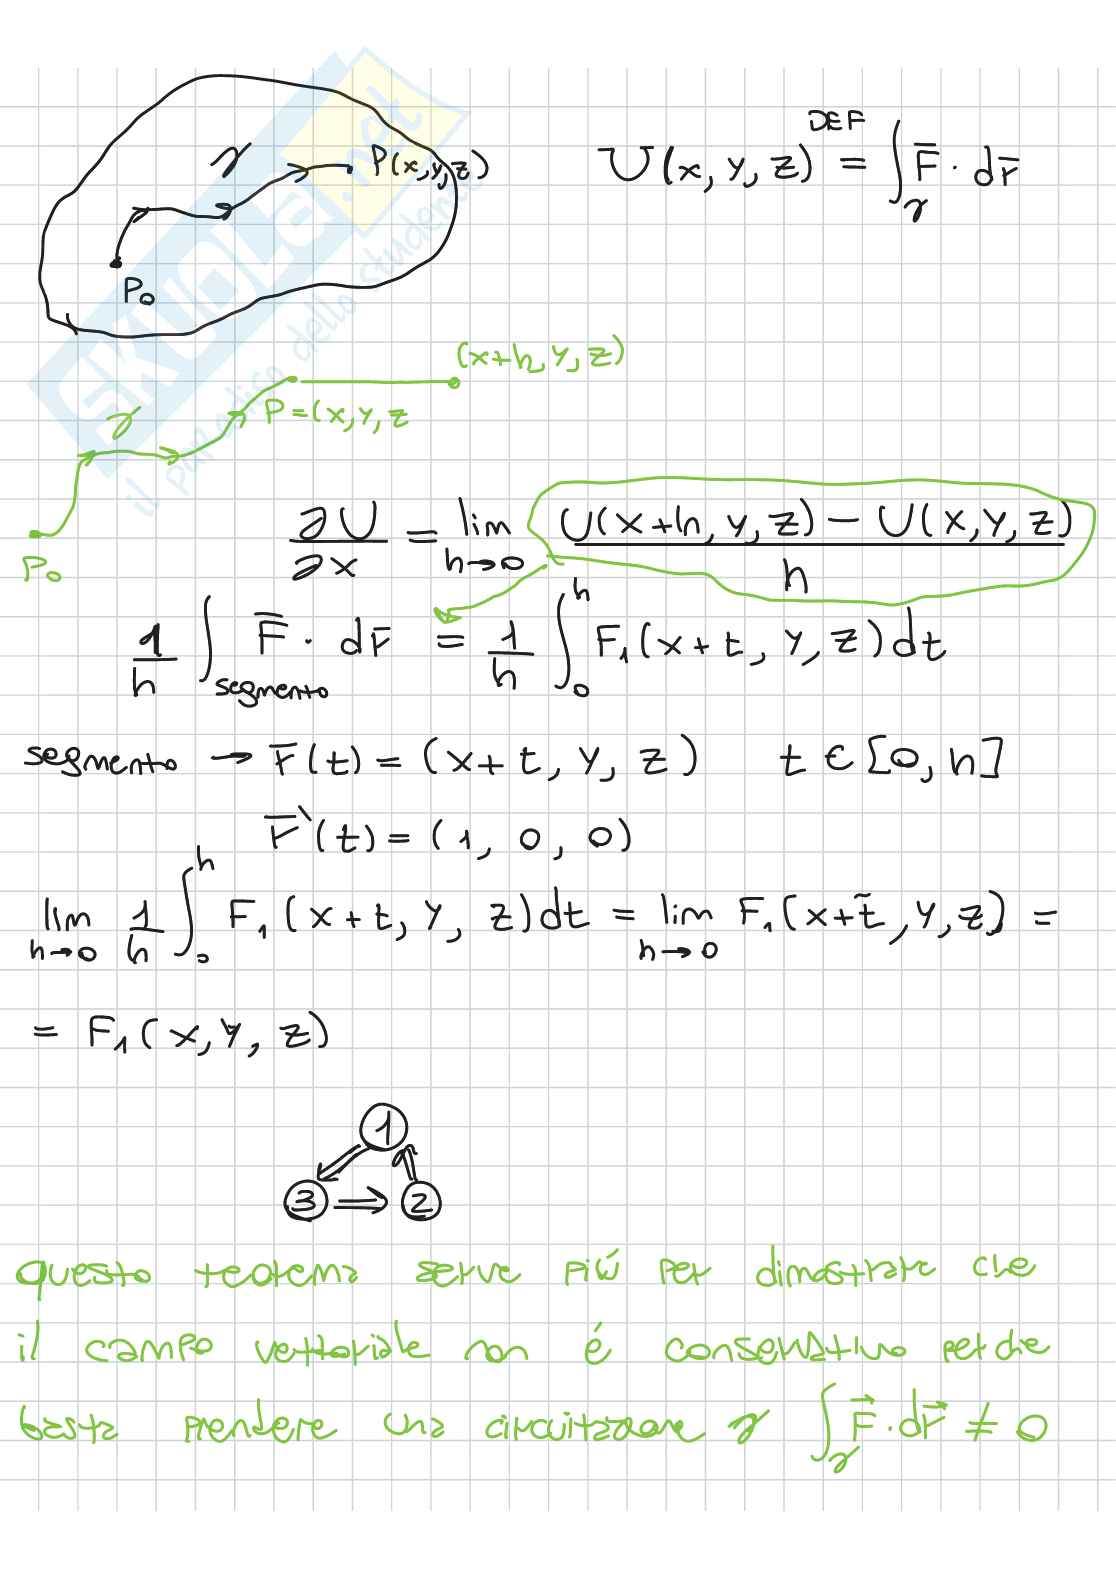 γ
P(x,y,z)
P₀
U(x, y, z) = ∫_γ F̄ · dr̄
DEF
(x+h, y, z)
γ
P=(x,y,z
P₀
∂U/∂x = lim_{h→0} (U(x+h, y, z) − U(x, y, z))/h
1/h ∫_{segmento} F̄ · dr̄ = 1/h ∫₀^h F₁(x+t, y, z)dt
segmento → r̄(t) = (x+t, y, z) t ∈ [0, h]
r̄'(t) = (1, 0, 0)
lim_{h→0} 1/h ∫₀^h F₁(x+t, y, z)dt = lim_{h→0} F₁(x+t̃, y, z) =
= F₁(x, y, z)
1
3 ⇒ 2
questo teorema serve più per dimostrare che
il campo vettoriale non é conservativo perche
basta prendere una circuitazione γ ∫_γ F⃗ · dr⃗ ≠ 0
SKUOLA.net
il paradiso dello studente